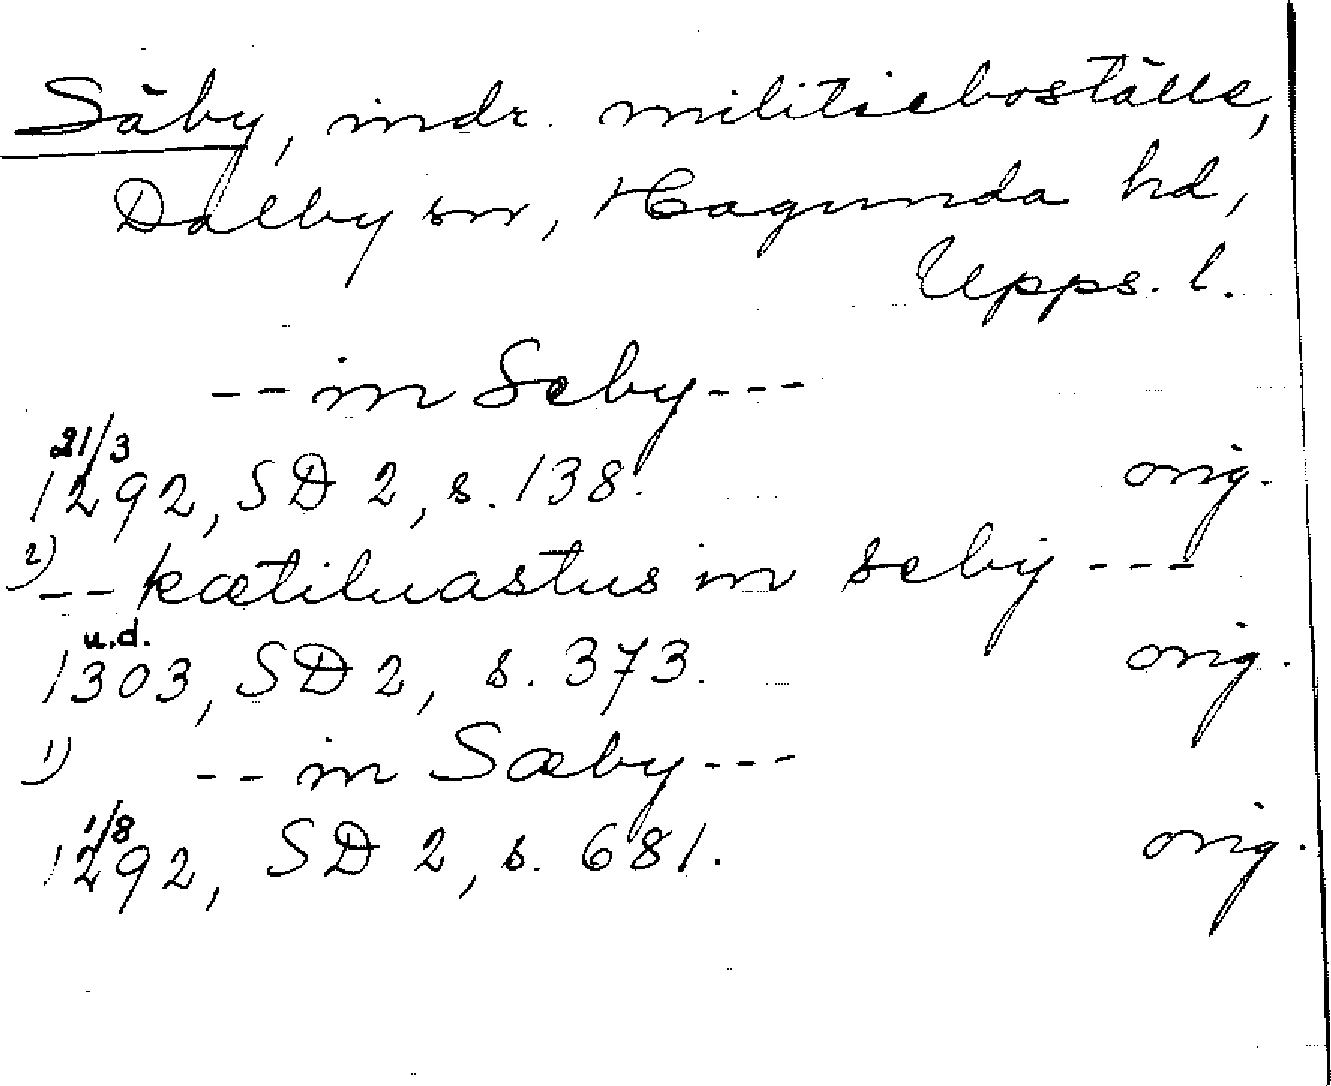 Säby, indr. militieboställe,
Dalby sn, Hagunda hd,
Upps. l.
-- in Seby ---
21/3
1292, SD 2, s. 138. orig.
2) -- kætiluastus in seby ---
u.d.
1303, SD 2, s. 373. orig.
1) -- in Sæby ---
1/8
1292, SD 2, s. 681. orig.